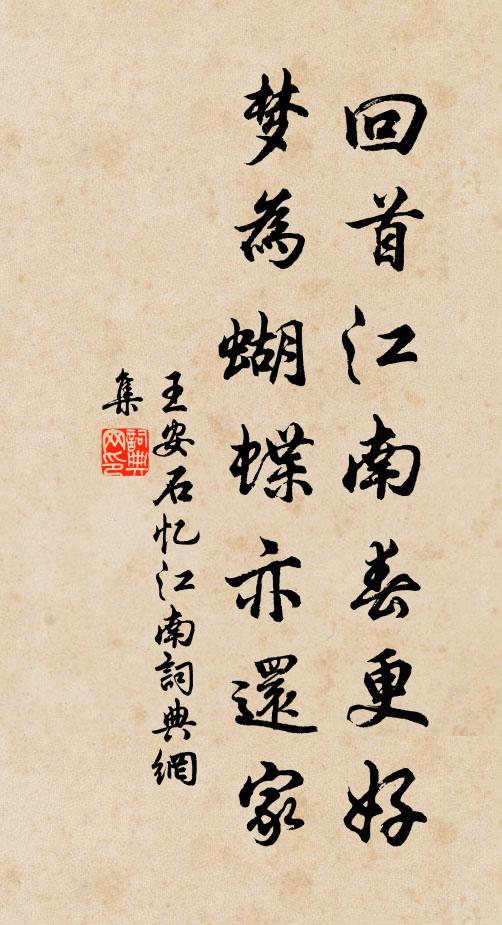 回首江南春更好
梦為蝴蝶亦還家
王安石忆江南詞典網
集
詞典
网印